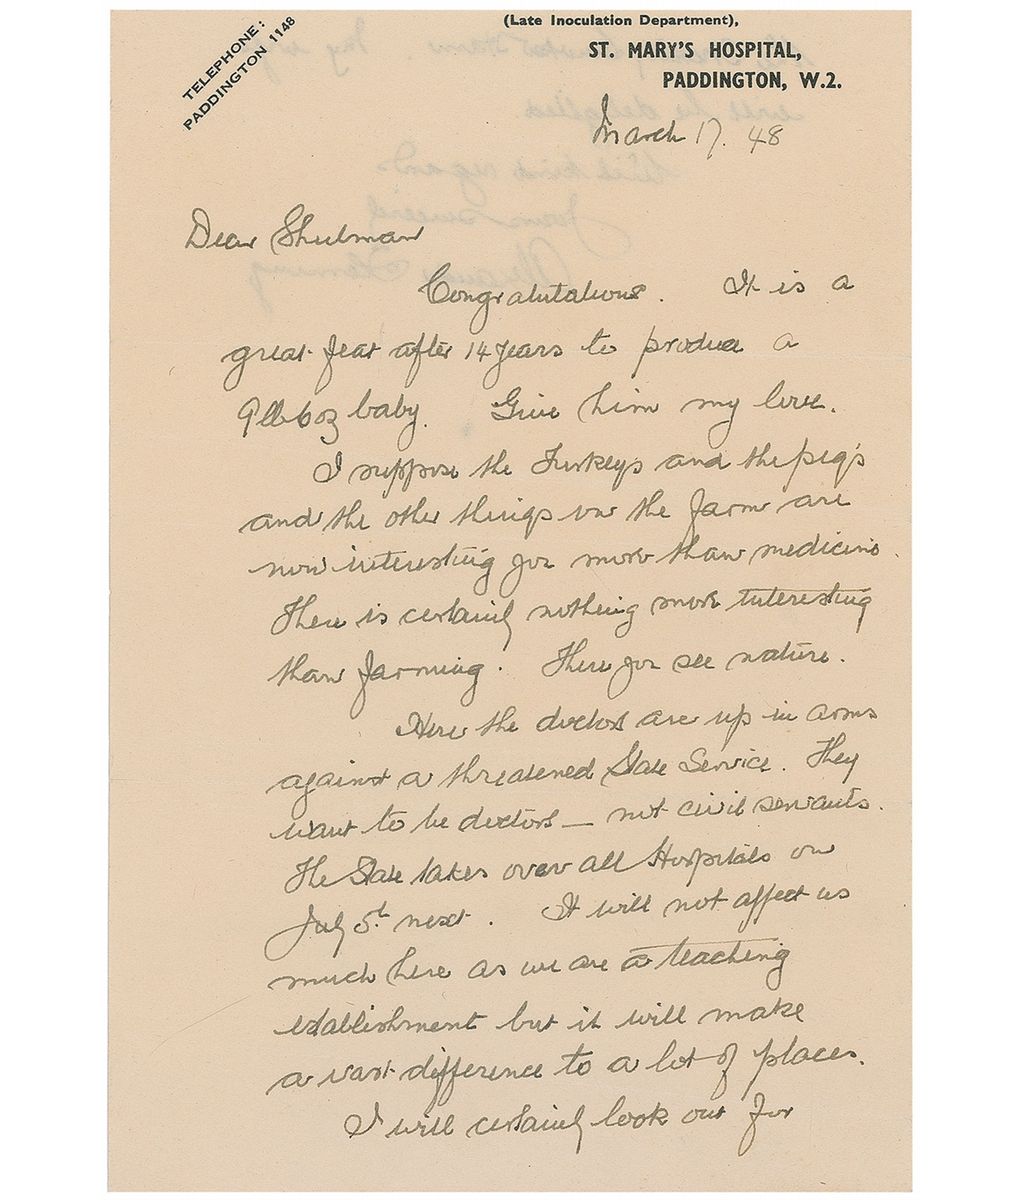 TELEPHONE:
PADDINGTON 1148
(Late Inoculation Department),
ST. MARY'S HOSPITAL,
PADDINGTON, W.2.
March 17. 48
Dear Shulman
Congratulations. It is a
great feat after 14 years to produce a
9lb 6oz baby. Give him my love.
I suppose the Turkeys and the pigs
and the other things on the farm are
now interesting you more than medicine.
There is certainly nothing more interesting
than farming. There you see nature.
Here the doctors are up in arms
against a threatened State Service. They
want to be doctors — not civil servants.
The State takes over all Hospitals on
July 5th next. It will not affect us
much here as we are a teaching
establishment but it will make
a vast difference to a lot of places.
I will certainly look out for